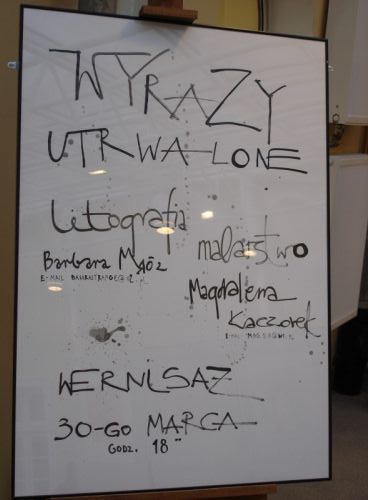 WYRAZY
UTRWALONE
Litografia
Barbara
E-MAIL
malarstwo
Magdalena
Kaczorek
WERNISAŻ
30-GO MARCA
GODZ. 18⁰⁰